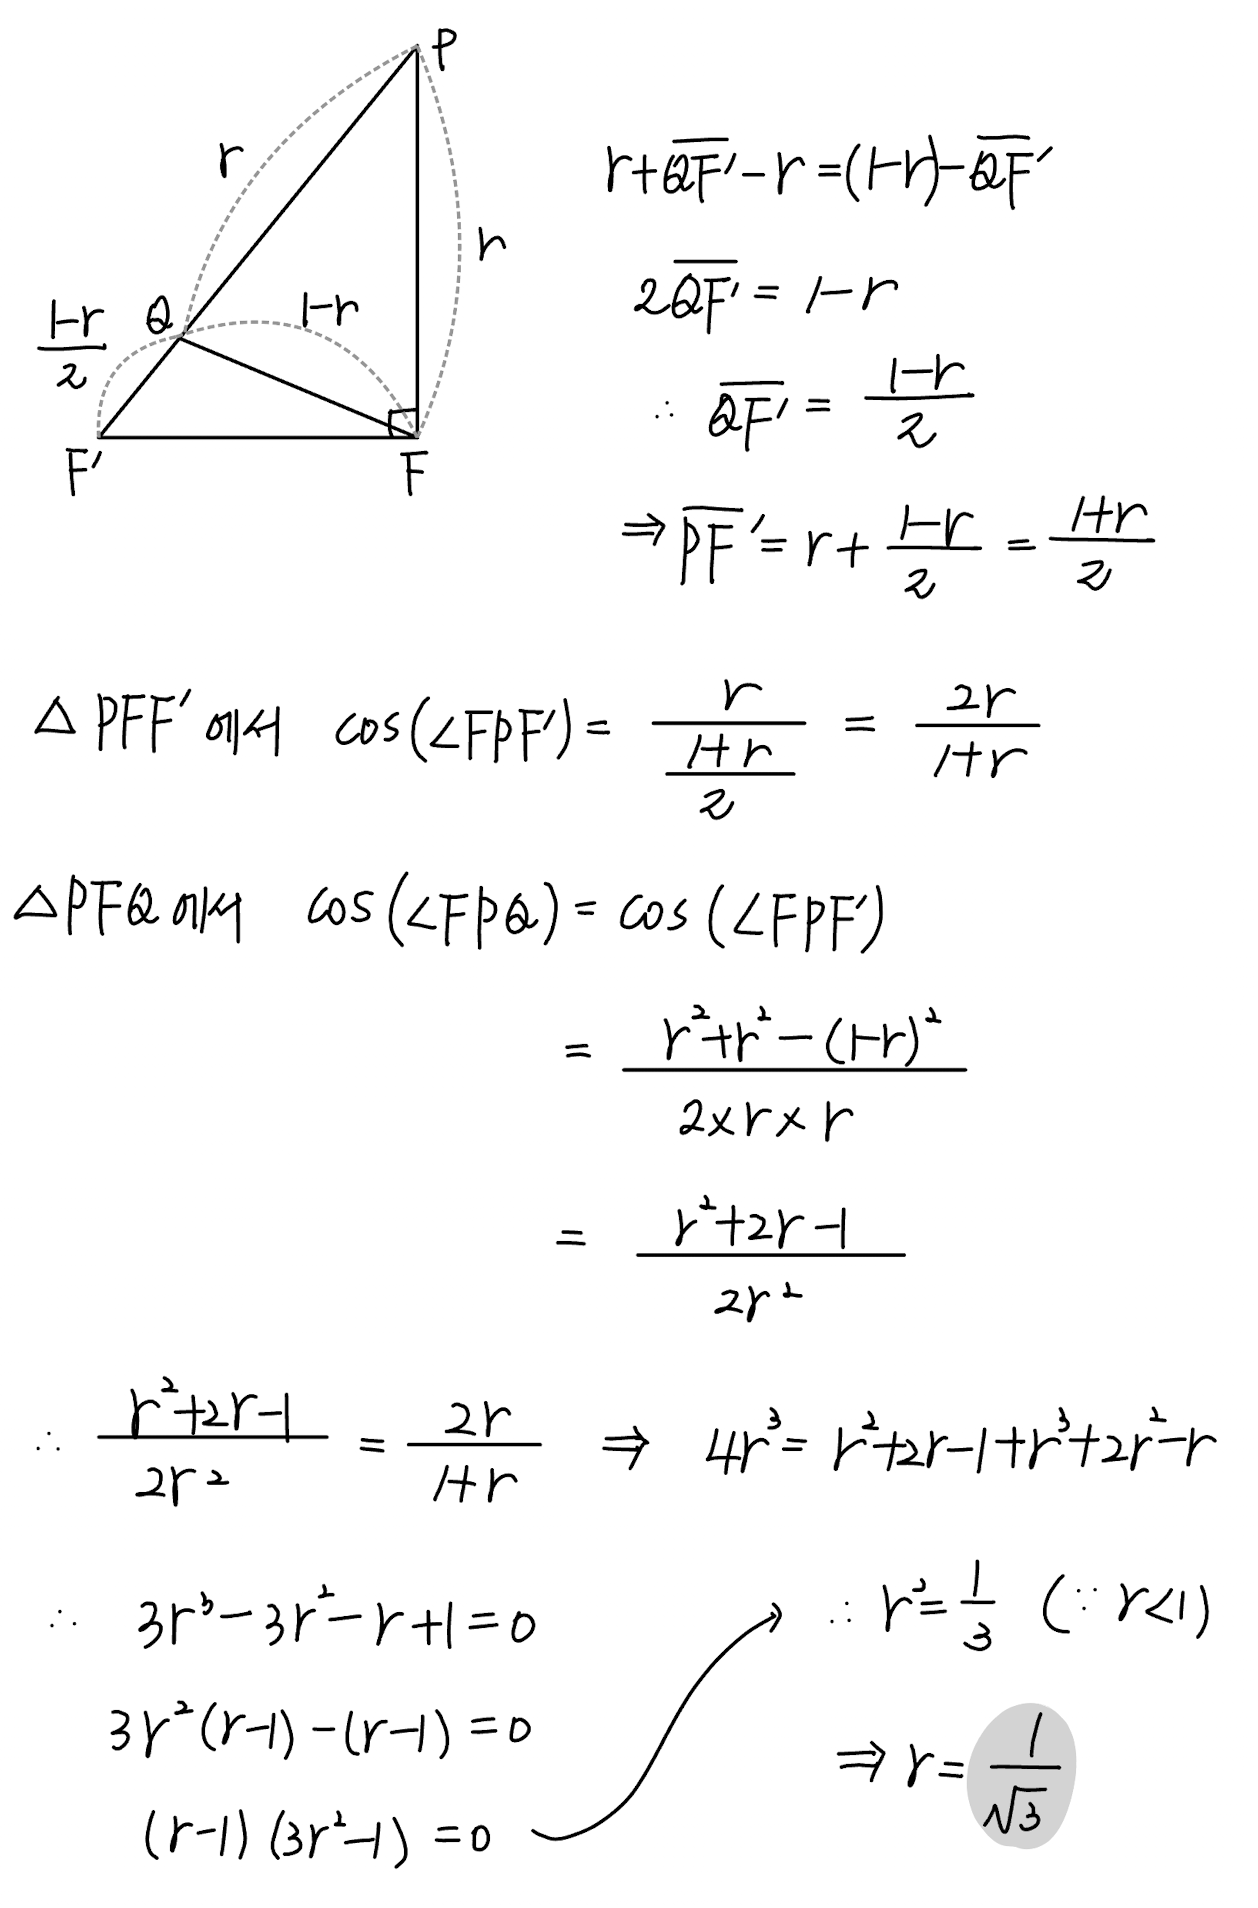 P
r
r
(1-r)/2
Q
1-r
F'
F
r+Q̅F̅'-r=(1-r)-Q̅F̅'
2Q̅F̅'=1-r
∴ Q̅F̅'=(1-r)/2
⇒P̅F̅'=r+(1-r)/2=(1+r)/2
△PFF'에서 cos(∠FPF')=r/((1+r)/2)=2r/(1+r)
△PFQ에서 cos(∠FPQ)=cos(∠FPF')
=(r²+r²-(1-r)²)/(2×r×r)
=(r²+2r-1)/(2r²)
∴ (r²+2r-1)/(2r²)=2r/(1+r) ⇒ 4r³=r²+2r-1+r³+2r²-r
∴ 3r³-3r²-r+1=0
3r²(r-1)-(r-1)=0
(r-1)(3r²-1)=0
∴ r²=1/3 (∵ r<1)
⇒ r=1/√3